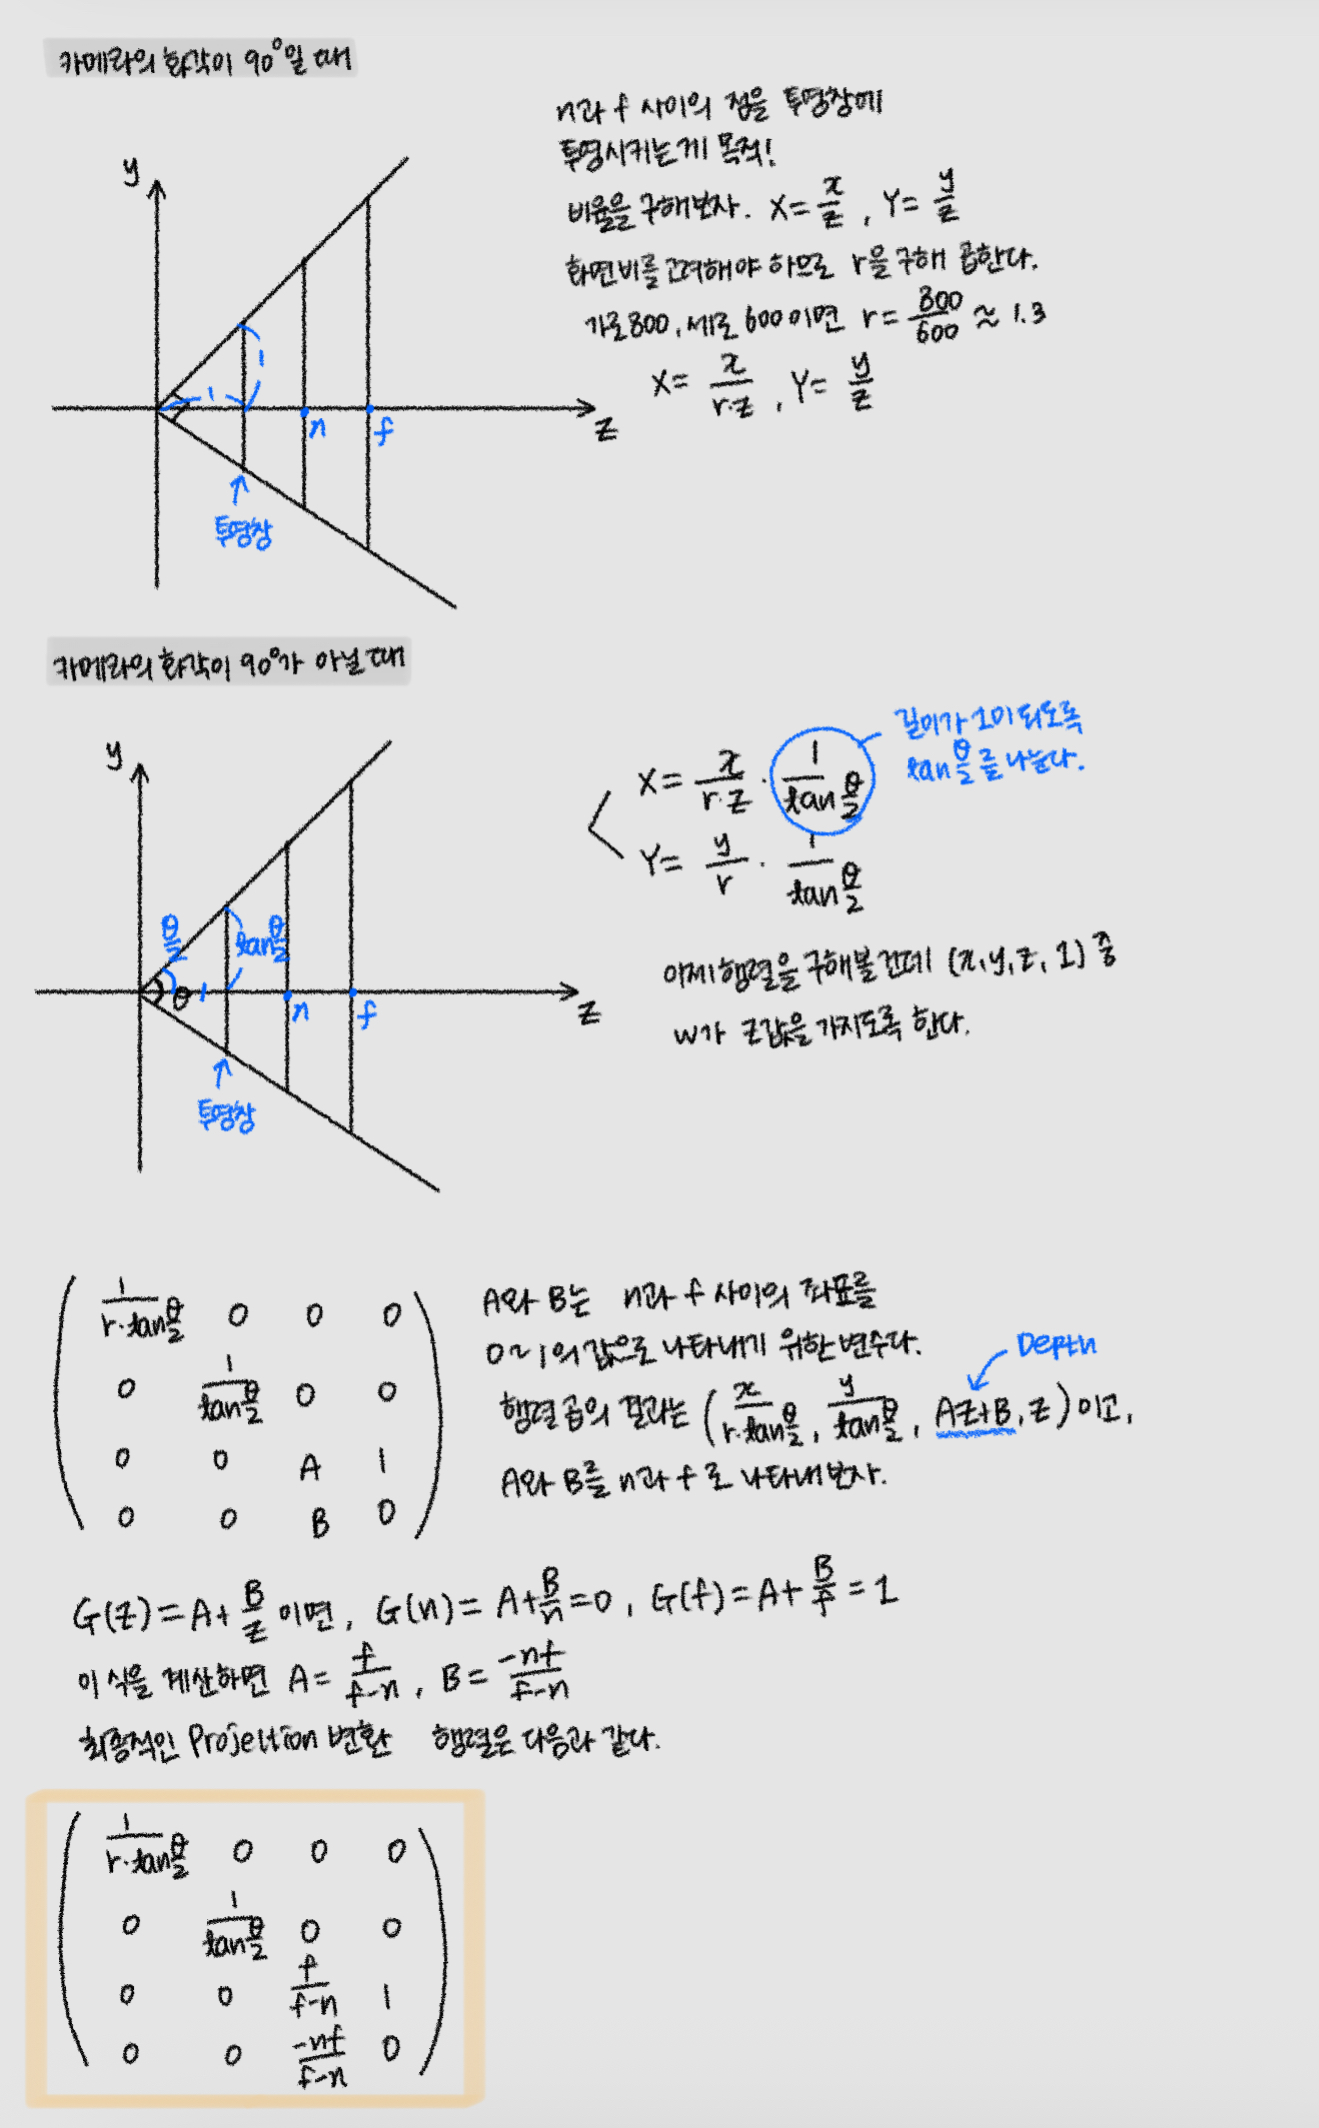 카메라의 화각이 90°일 때
n과 f 사이의 점을 투영창에
투영시키는게 목적!
비율을 구해보자. X = x/z , Y = y/z
화면비를 고려해야 하므로 r을 구해 곱한다.
가로 800, 세로 600이면 r = 800/600 ≈ 1.3
X = x/(r·z) , Y = y/z
y
1
1
n
f
z
투영창
카메라의 화각이 90°가 아닐 때
길이가 1이 되도록
tan θ/2 를 나눈다.
X = x/(r·z) · 1/(tan θ/2)
Y = y/r · 1/(tan θ/2)
이제 행렬을 구해볼건데 (x, y, z, 1) 중
w가 z값을 가지도록 한다.
y
θ/2
tan θ/2
θ
1
n
f
z
투영창
1/(r·tan θ/2) 0 0 0
0 1/(tan θ/2) 0 0
0 0 A 1
0 0 B 0
A와 B는 n과 f 사이의 좌표를
0~1의 값으로 나타내기 위한 변수다.
Depth
행렬 곱의 결과는 (x/(r·tan θ/2), y/(tan θ/2), Az+B, z) 이고,
A와 B를 n과 f로 나타내보자.
G(z) = A + B/z 이면, G(n) = A + B/n = 0, G(f) = A + B/f = 1
이 식을 계산하면 A = f/(f-n) , B = -nf/(f-n)
최종적인 Projection 변환 행렬은 다음과 같다.
1/(r·tan θ/2) 0 0 0
0 1/(tan θ/2) 0 0
0 0 f/(f-n) 1
0 0 -nf/(f-n) 0